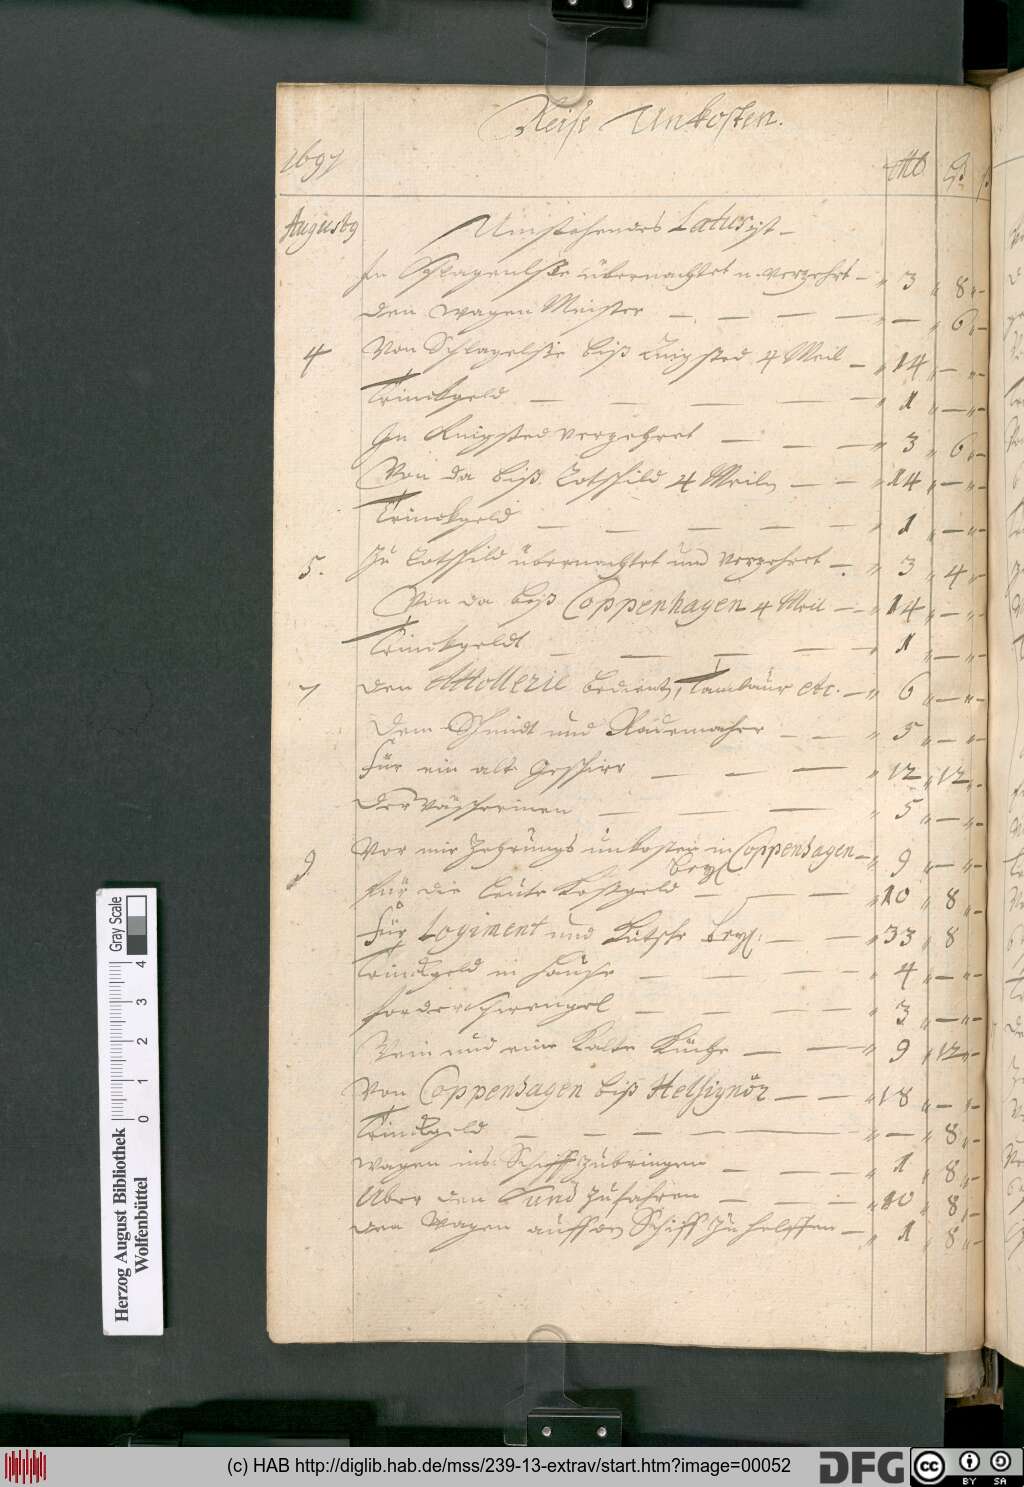 Reise Unkosten.
1697
Augusty
Umstehendes Latus ist –
In Schlagenlsie übernachtet u. verzehrt – " 3 " 8 " –
den Wagen Meister – – – – " – " 6 " –
4 Von Schlagelsie biß Ringsted 4 Meil – " 14 " – " –
Trinckgeld – – – – " 1 " – " –
In Ringsted verzehret – – – " 3 " 6 " –
Von da biß Rotschild 4 Meiln – – " 14 " – " –
Trinckgeld – – – – – " 1 " – " –
5. Zu Rotschild übernachtet und verzehret – " 3 " 4 " –
Von da biß Coppenhagen 4 Meil – – " 14 " – " –
Trinckgeldt – – – – " 1 " – " –
7 den bedient, Tambaur etc. – " 6 " – " –
Dem Schmidt und Rademacher – – " 5 " – " –
Für ein alt Geschirr – – – " 12 " 12 " –
der Wäscherinnen – – – " 5 " – " –
9 Vor mir Zehrungs unkosten in Coppenhagen – " 9 " – " –
für die leute Kostgeld Beyl – – – " 10 " 8 " –
Für Logiment und Kutsche Beyl: – – " 33 " 8 " –
Trinckgeld im Hause – – – – " 4 " – " –
– – – " 3 " – " –
Wein und eine Kalte Küche – – " 9 " 12 " –
Von Coppenhagen biß Helsignör – – " 18 " – " –
Trinckgeld – – – – " – " 8 " –
Wagen ins Schiff zubringen – – " 1 " 8 " –
Uber den Sund zufahren – – – " 10 " 8 " –
den Wagen auff den Schiff zu helffen – " 1 " 8 " –
Gray Scale
0 1 2 3 4
Herzog August Bibliothek
Wolfenbüttel
(c) HAB http://diglib.hab.de/mss/239-13-extrav/start.htm?image=00052
DFG
cc BY SA